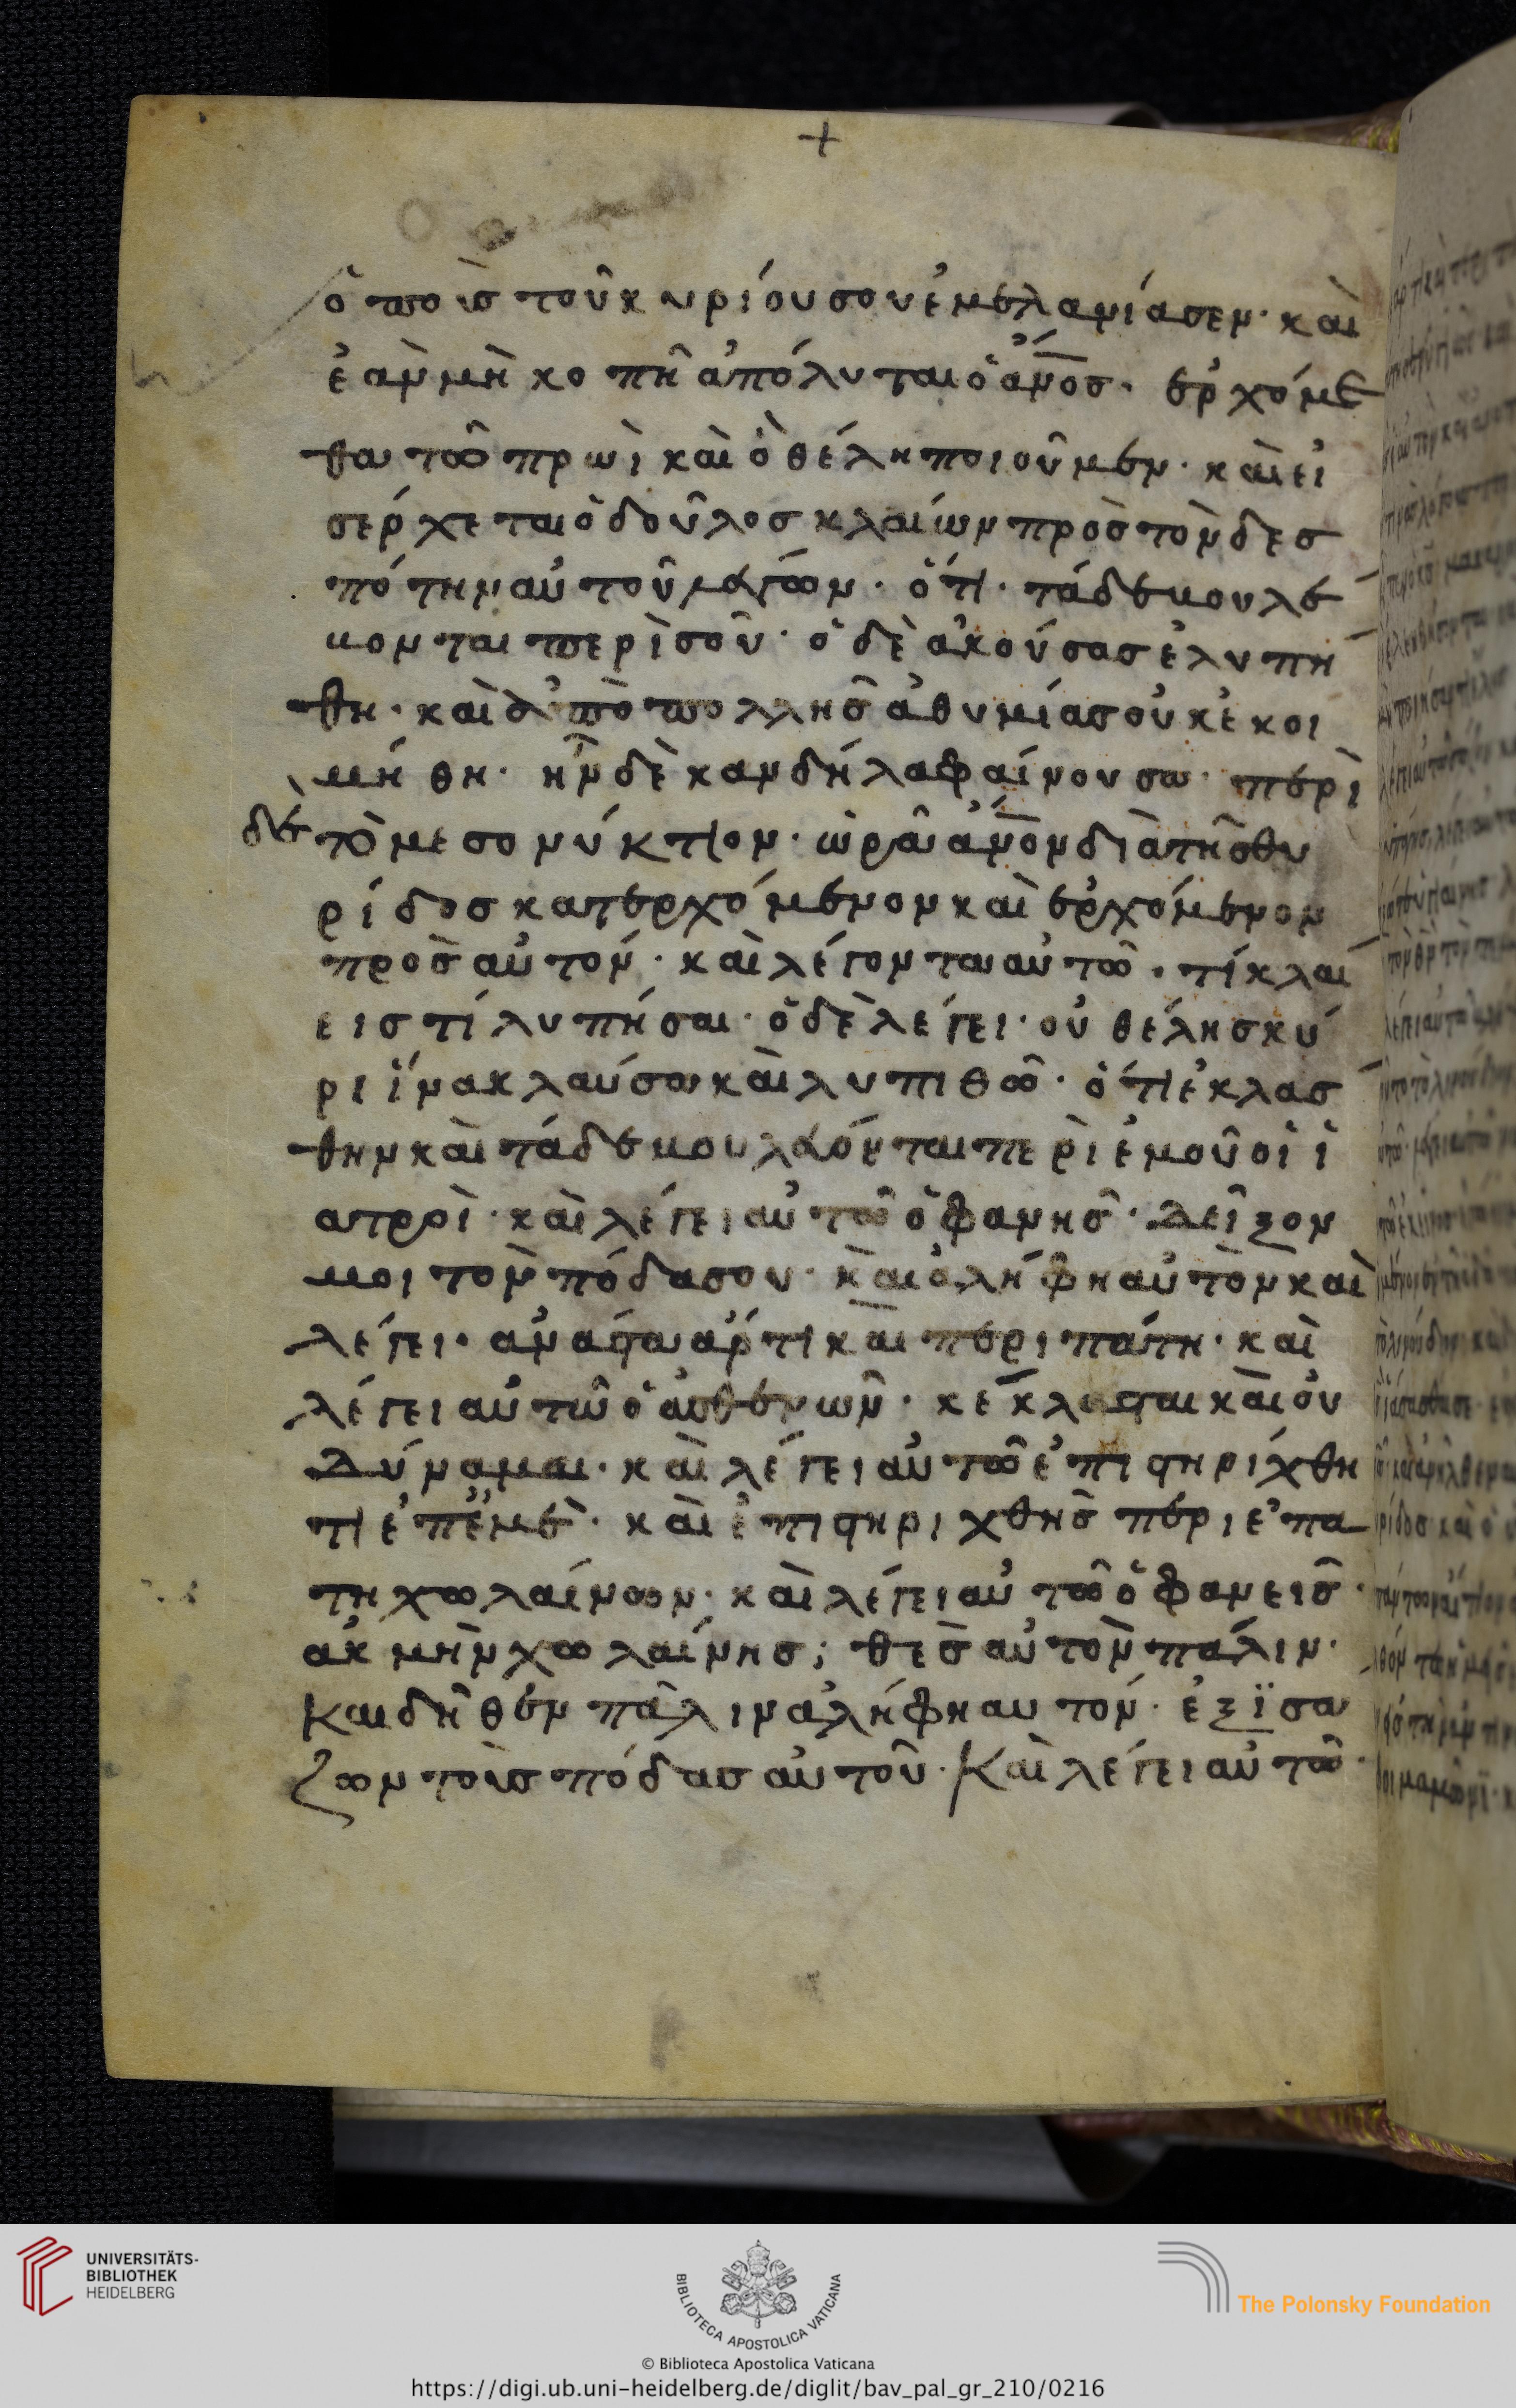 +
ὁ ποὺς τοῦ κυρίου σου ἐμελανίασεν· καὶ
ἐὰν μὴ κοπῆ ἀπόλυται ὁ ἄνος· ἐρχόμε
θα τὸ πρωῒ καὶ ὃ θέλη ποιοῦμεν· καὶ εἰ
σέρχεται ὁ δοῦλος κλαίων πρὸς τὸν δεσ
πότην αὐτοῦ λέγων· ὅτι· τάδε βουλεύ
ονται περὶ σοῦ· ὁ δὲ ἀκούσας ἐλυπή
θη· καὶ ἀπὸ πολλῆς ἀθυμίας οὐκ ἐκοι
μήθη· ἦν δὲ κανδήλα φαίνουσα· περὶ
δὲ τὸ μεσονύκτιον· ὡρᾶ ἄνον διὰ τῆς θυ
ρίδος κατερχόμενον καὶ ἐρχόμενον
πρὸς αὐτόν· καὶ λέγοντα αὐτῶ· τί κλαί
εις τί λυπήσαι· ὁ δὲ λέγει· οὐ θέλης κύ
ρι ἵνα κλαύσω καὶ λυπιθῶ· ὅτι ἐκλάσ
θην καὶ τάδε βουλεύονται περὶ ἐμοῦ οἱ ἰ
ατροὶ· καὶ λέγει αὐτῶ ὁ φανῆς· δεῖξον
μοι τὸν πόδα σου· καὶ ἀλήφη αὐτὸν καὶ
λέγει· ἀνάστα ἄρτι καὶ περιπάτη· καὶ
λέγει αὐτῶ ὁ ἀσθενῶν· κέκλασται καὶ οὐ
δύναμαι· καὶ λέγει αὐτῶ ἐπιστηρίχθη
τι ἐπ' ἐμὲ· καὶ ἐπιστηριχθῆς περιεπά
τη χωλαίνων· καὶ λέγει αὐτῶ ὁ φανεὶς·
ἀκμὴν χωλαίνης; θὲς αὐτὸν πάλιν·
Και δῆθεν πάλιν ἀλήφη αυτόν· ἐξϊσά
ζων τοὺς πόδας αὐτοῦ· Καὶ λέγει αὐτῶ·
UNIVERSITÄTS-
BIBLIOTHEK
HEIDELBERG
BIBLIOTECA APOSTOLICA VATICANA
The Polonsky Foundation
© Biblioteca Apostolica Vaticana
https://digi.ub.uni-heidelberg.de/diglit/bav_pal_gr_210/0216